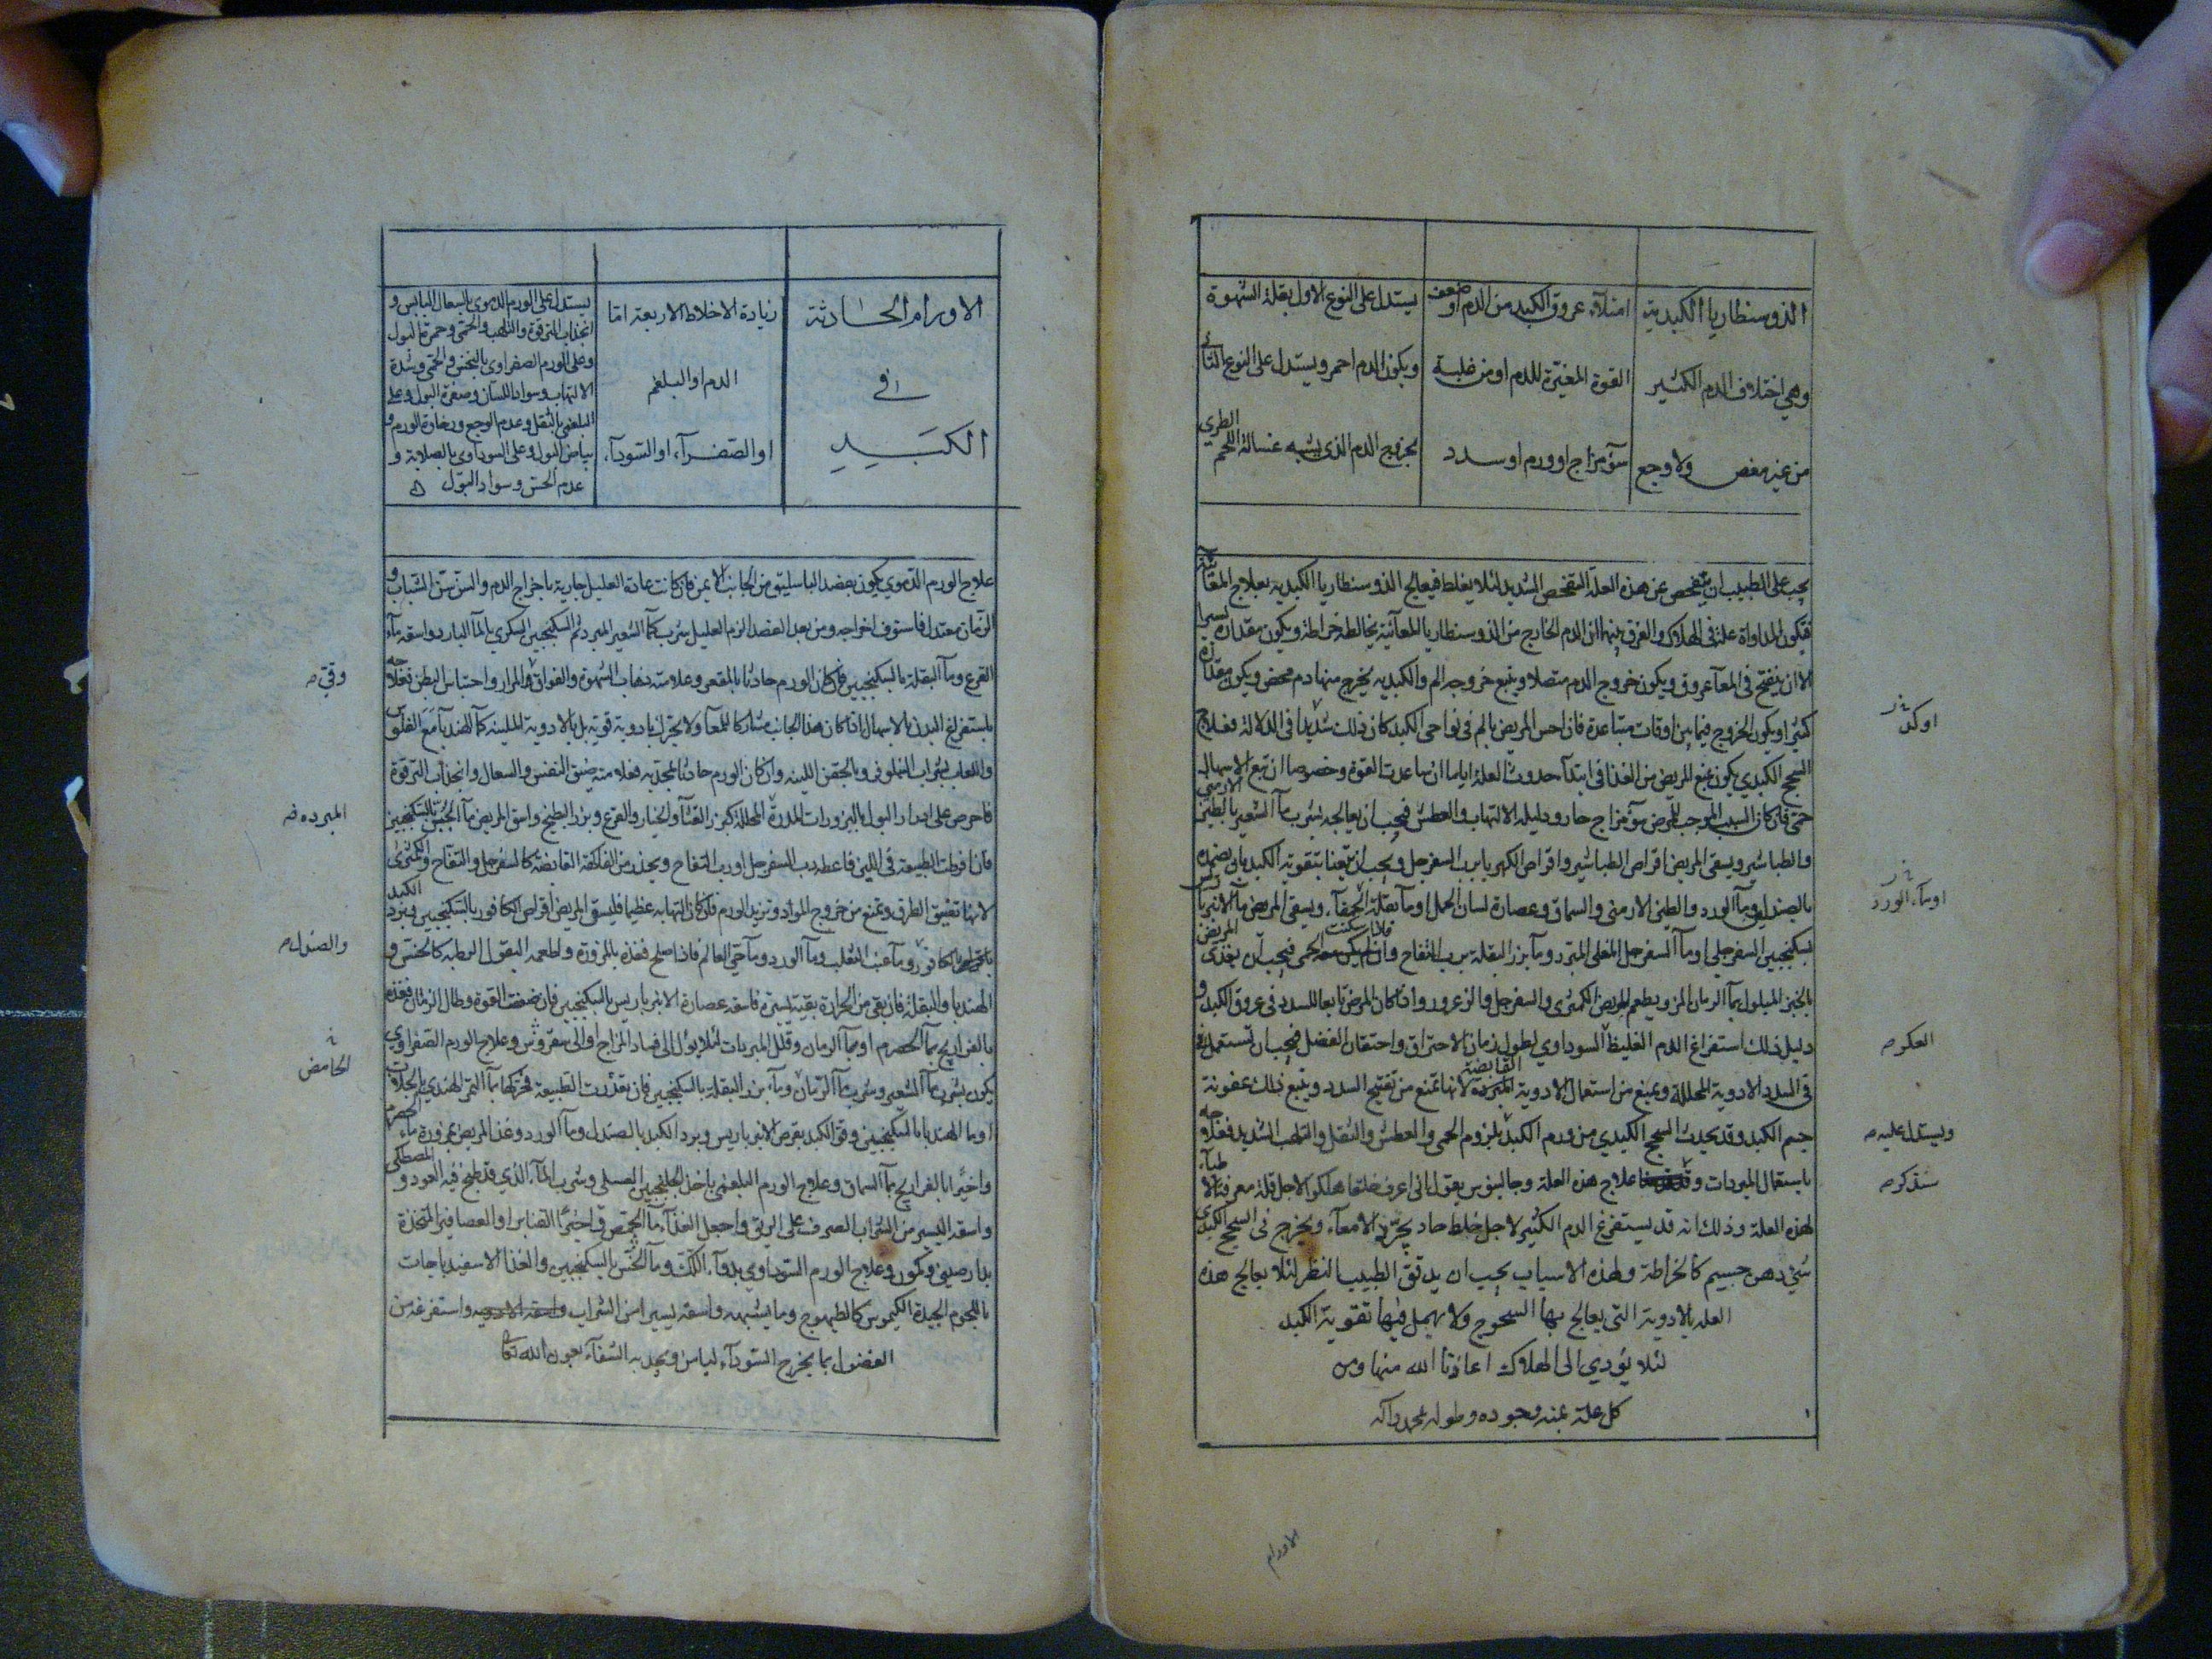 الذوسنطاريا الكبدية
وهي اختلاف الدم الكثير
من غير مغص ولا وجع
امتلآء عروق الكبد من الدم او ضعف
القوة المغيّرة للدم او من غلبة
سوء مزاج او ورم او سدد
يستدل على النوع الاول بقلة الشهوة
ويكون الدم احمر ويستدل على النوع الثاني
بخروج الدم الذي يشبه غسالة اللحم الطري
يجب على الطبيب ان يتفحص عن هذه العلة التفحص الشديد لئلا يغلط فيعالج الذوسنطاريا الكبدية بعلاج المعائية
فتكون المداواة علة في الهلاك والفرق بينهما ان الدم الخارج من الذوسنطاريا المعائية يخالطه خراطة ويكون مقداره يسيرا
الا ان ينفتح في المعآ عروق ويكون خروج الدم متصلا ويتبع خروجه الم والكبدية يخرج منها دم محض ويكون مقداره
كثيرا ويكون الخروج فيما بين اوقات متباعدة فان احس المريض بالم في نواحي الكبد كان ذلك شديدا في الدلالة فعلاج
السحج الكبدي يكون بمنع المريض من الغذا في ابتدآء حدوث العلة اياما ان ساعدت القوة وخصوصا ان تبع الاسهال
حمى فان كان السبب الموجب للمرض سوء مزاج حار ودليله الالتهاب والعطش فيجب ان يعالج بشرب مآ الشعير بالطين الارمني
والطباشير ويسقى المريض اقراص الطباشير واقراص الكهربا برب السفرجل ويجب ان يعتنا بتقوية الكبد بان يضمده
بالصندل ومآ الورد والطين الارمني والسماق وعصارة لسان الحمل او مآ بقلة الحمقآ، ويسقى المريض مآ الانبرباريس
بسكنجبين السفرجلي او مآ السفرجل المغلى المبرد ومآ بزر البقلة برب التفاح فاذا سكنت الحمى فيجب ان يغذى المريض
بالخبز المبلول بمآ الرمان المز ويطعم المريض الكمثرى والسفرجل والزعرور واذا كان المرض تابعا للسدد في عروق الكبد و
دليل ذلك استفراغ الدم الغليظ السوداوي لطول زمان الاحتراق واحتقان الفضل فيجب ان تستعمل
في السدد الادوية المحللة ويمنع من استعمال الادوية المبردة القابضة لانها تمنع من تفتيح السدد ويتبع ذلك عفونة
جسم الكبد وقد يحدث السحج الكبدي من ورم الكبد بلزوم الحمى والعطش والثقل والتلهب الشديد فعلاجه
باستعمال المبردات و علاج هذه العلة وجالينوس يقول اني اعرف خلقا هلكوا لاجل قلة معرفة الاطبآء
لهذه العلة وذلك انه قد يستفرغ الدم الكثير لاجل خلط حاد يجرد الامعآء ويخرج في السحج الكبدي
شيء دهن جسيم كالخراطة ولهذه الاسباب يجب ان يدقق الطبيب النظر لئلا يعالج هذه
العلة بالادوية التي يعالج بها السحوج ولا يهمل فيها تقوية الكبد
لئلا يؤدي الى الهلاك اعاذنا الله منها ومن
كل علة بمنه وجوده وطوله بمحمد وآله
او كدر
او مآء الورد
العكر صح
ويستدل عليه صح
سنذكر صح
الاورام
الاورام الحادثة
في
الكبد
زيادة الاخلاط الاربعة امّا
الدم او البلغم
او الصفرآء او السودآء
يستدل على الورم الدموي بالسعال اليابس و
انجذاب الترقوة والتلهب والحمى وحمرة البول
وعلى الورم الصفراوي بالنخس والحمى وشدة
الالتهاب وسواد اللسان وصفرة البول وعلى
البلغمي بالثقل وعدم الوجع ورخاوة الورم و
بياض البول وعلى السوداوي بالصلابة و
عدم الحس وسواد البول
علاج الورم الدموي يكون بفصد الباسليق من الجانب الايمن فان كانت عادة العليل جارية باخراج الدم والسن سن الشباب و
الزمان معتدل فاستوف اخراجه ومن بعد الفصد الزم العليل شرب مآ الشعير المبرد ثم السكنجبين السكري بالمآ البارد واسقه مآء
القرع ومآ البقلة بالسكنجبين فان كان الورم حادثا بالمقعر وعلامته ذهاب الشهوة والفواق والمرار واحتباس البطن فعلاجه
باستفراغ البدن بالاسهال اذا كان هذا الجانب مشاركا للمعآ ولا يتحرك بادوية قوية بل بالادوية الملينة كمآ الهندبآ مع الفلوس
واللعاب بشراب النيلوفر وبالحقن اللينة وان كان الورم حادثا بمحدبه فعلامته ضيق النفس والسعال وانجذاب الترقوة
فاحرص على ادرار البول بالبزورات المدرة المحللة كبزر القثآ والخيار والقرع وبزر البطيخ واسق المريض مآ الجبن بالسكنجبين
فان افرطت الطبيعة في اللين فاعطه رب السفرجل او رب التفاح ويحذر من الفاكهة القابضة كالسفرجل والتفاح والكمثرى
لانها تضيق الطرق وتمنع من خروج المواد وتزيد الورم فان كان التهابه عظيما فليسق المريض اقراص الكافور بالسكنجبين وبرد الكبد
بالكافور ومآ عنب الثعلب ومآ الورد ومآ حي العالم فاذا صلح فغذه بالمزورة واطعمه البقول الرطبة كالخس و
الهندبا والبقلة فان بقي من الحرارة بقية يسيرة فاسقه عصارة الانبرباريس بالسكنجبين فان ضعفت القوة وطال الزمان فغذه
بالفراريج بمآ الحصرم او بمآ الرمان وقلل المبردات لئلا يؤل الى فساد المزاج او الى سقيروس وعلاج الورم الصفراوي
يكون بشرب مآ الشعير وشرب مآ الرمان ومآ بزر البقلة بالسكنجبين فان تعذرت الطبيعة فحركها بمآ التمر الهندي بالجلاب
او بمآ الهندبا بالسكنجبين وقو الكبد بقرص الانبرباريس وبرد الكبد بالصندل ومآ الورد وغذ المريض بمزورة مآء الحصرم
واخيرا بالفراريج بمآ السماق وعلاج الورم البلغمي باخذ الجلنجبين العسلي وشرب المآء الذي قد طبخ فيه العود و المصطكى
واسقه اليسير من الشراب الصرف على الريق واجعل الغذآء مآ الحمص وفي اخره القنابر او العصافير المتخذة
بدارصيني وكمون وعلاج الورم السوداوي بدوآء اللك ومآ الخس بالسكنجبين والغذا الاسفيدباجات
باللحوم الجيدة الكيموس كالطيهوج وما يشبهه واسقه يسيرا من الشراب واستفرغه من
الفضول بما يخرج السودآء ليامن ويجد به الشفآء بعون الله تعالى
وقي صح
المبردة صح
والصندل صح
الحامض